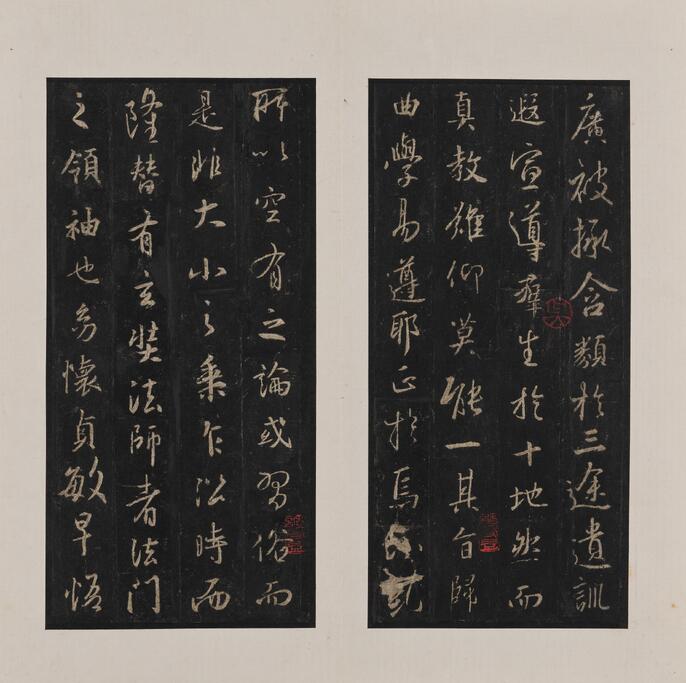 廣被拯含類於三途遺訓
遐宣導群生於十地然而
真教難仰莫能一其旨歸
曲學易遵耶正於焉紛糺
所以空有之論或習俗而
是非大小之乘乍沿時而
隆替有玄奘法師者法門
之領袖也幼懷貞敏早悟